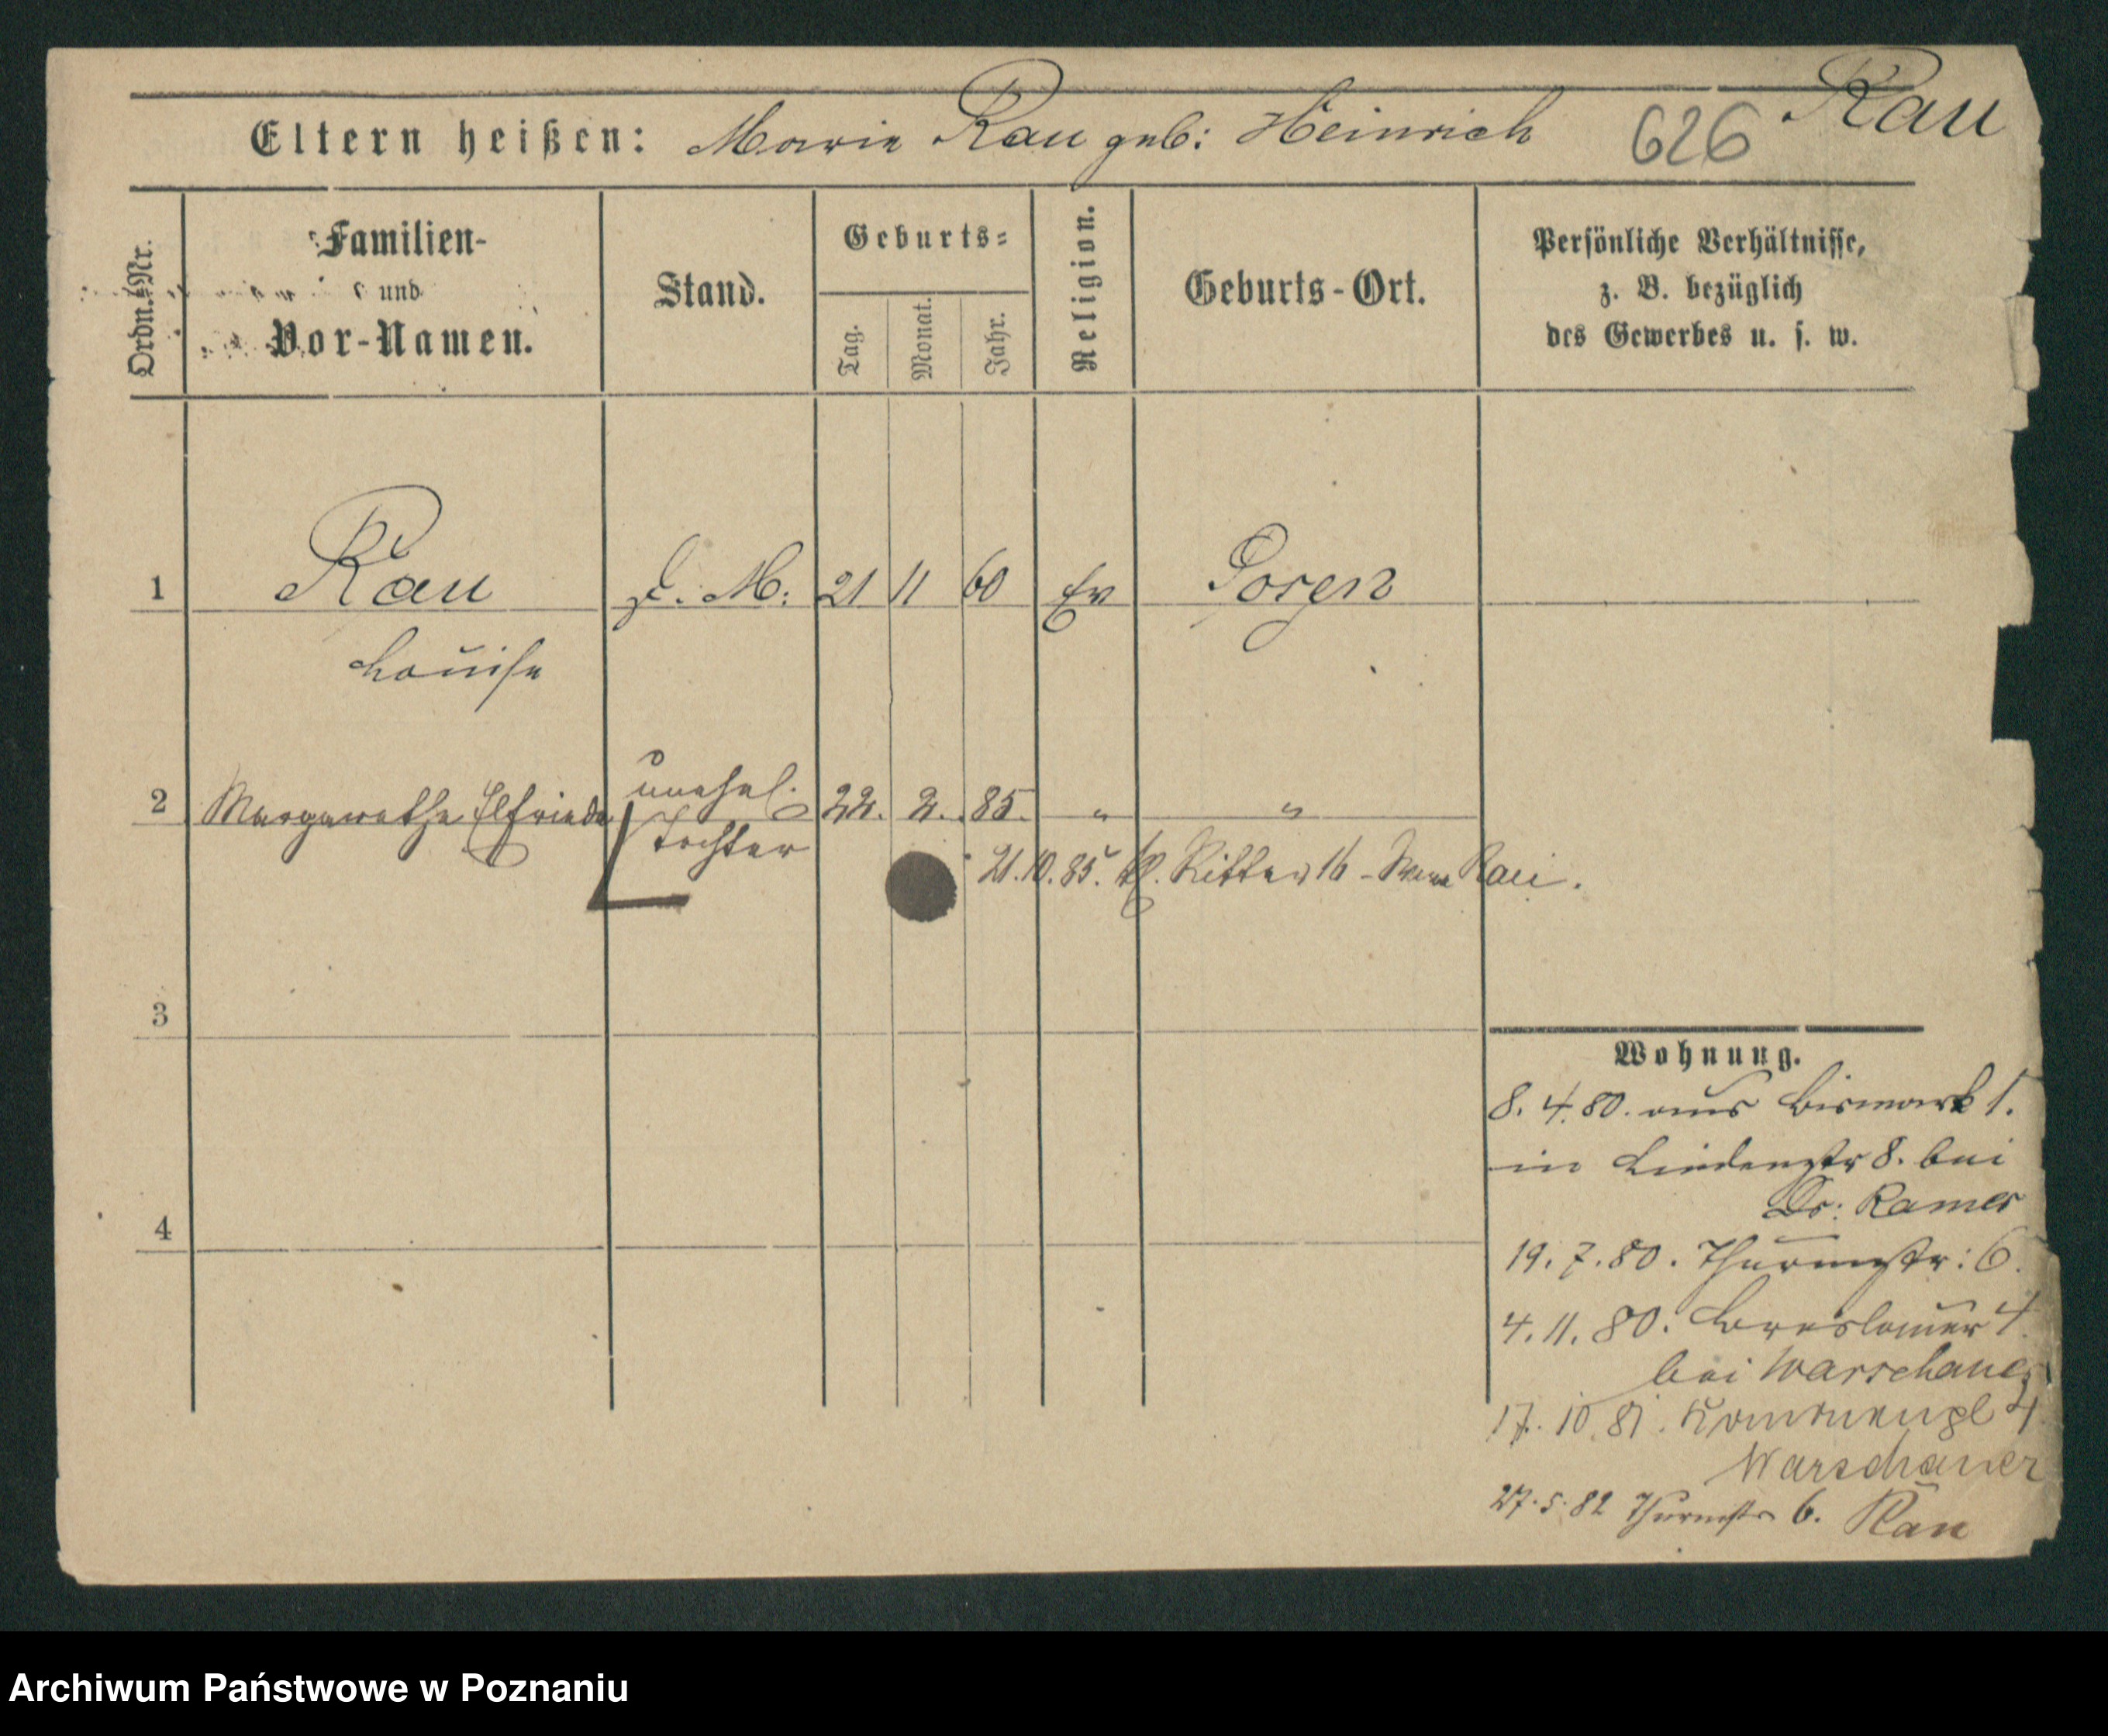 Rau
626
Eltern heißen: Marie Rau geb: Heinrich
Ordn.-Nr.
Familien-
und
Vor-Namen.
Stand.
Geburts-
Tag.
Monat.
Jahr.
Religion.
Geburts-Ort.
Persönliche Verhältnisse,
z. B. bezüglich
des Gewerbes u. s. w.
1 Rau D. M. 21 11 60 Ev Posen
Louise
2 Margarethe Elfriede unehel. 22. 2. 85. " "
Tochter
21.10.85. Kl. Ritter 16 - Rau.
3
Wohnung.
8. 4. 80. aus Bismark 1.
in Lindenstr 8. bei
Dr: Ramer
4
19. 7. 80. Thurmstr: 6.
4. 11. 80. Breslauer 4
bei Warschauer
17. 10. 81. 4
Warschauer
27. 5. 82 Thurmstr 6. Rau
Archiwum Państwowe w Poznaniu